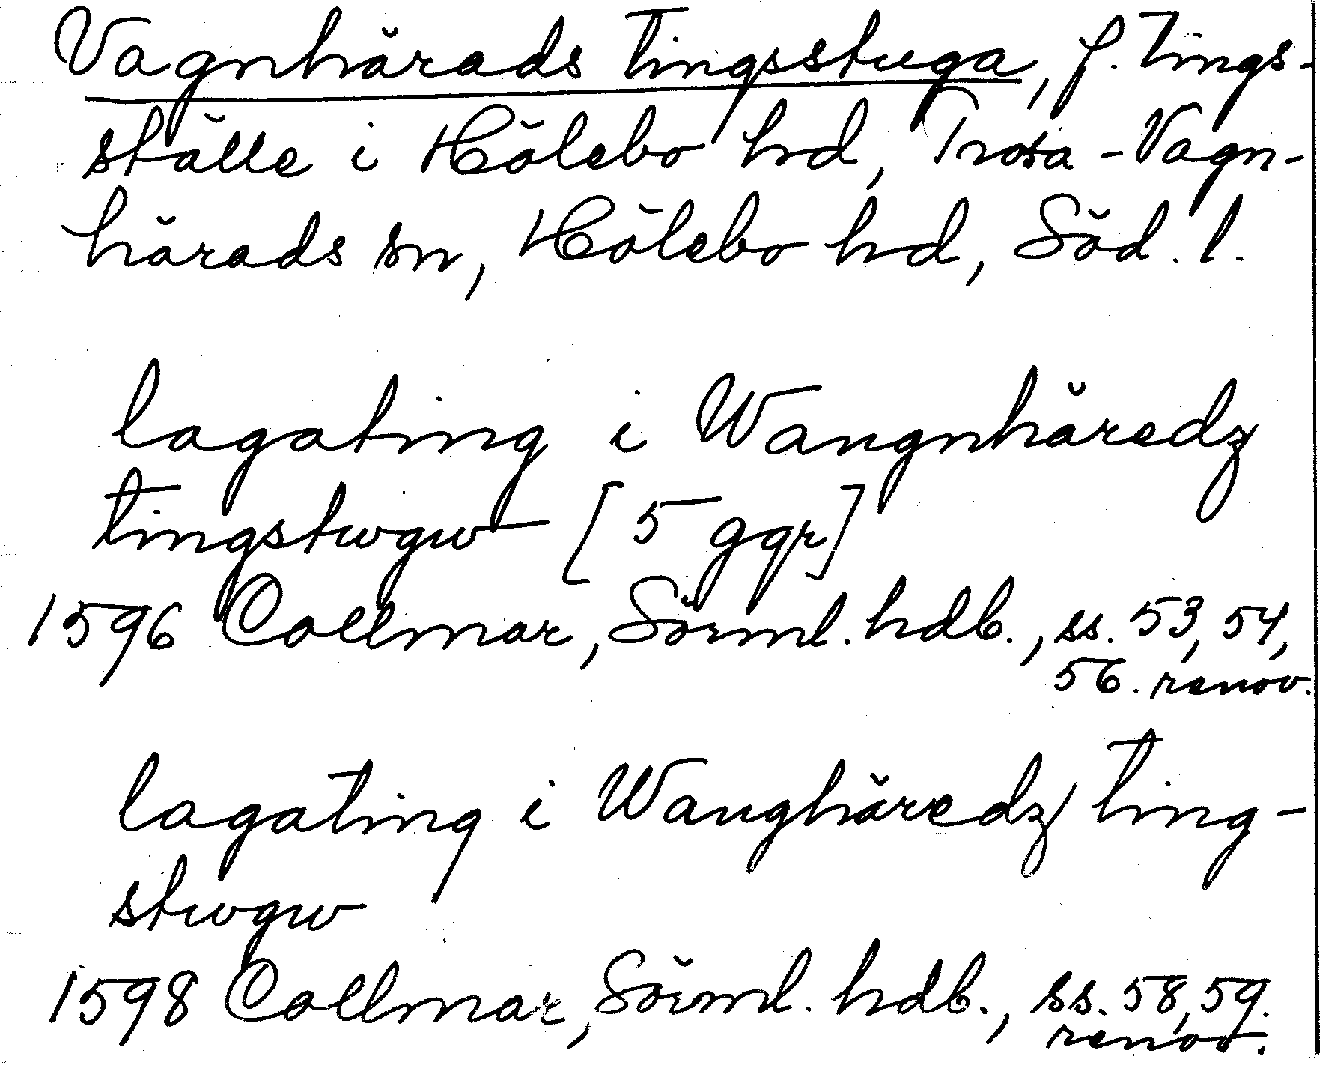 Vagnhärads tingsstuga, f. tings-
ställe i Hölebo hd, Trosa-Vagn-
härads sn, Hölebo hd, Söd. l.
lagating i Wangnhäredz
tingstwgw [5 ggr]
1596 Collmar, Sörml. hdb., ss. 53, 54,
56. renov.
lagating i Wanghäredz ting-
stwgw
1598 Collmar, Sörml. hdb., ss. 58, 59.
renov.